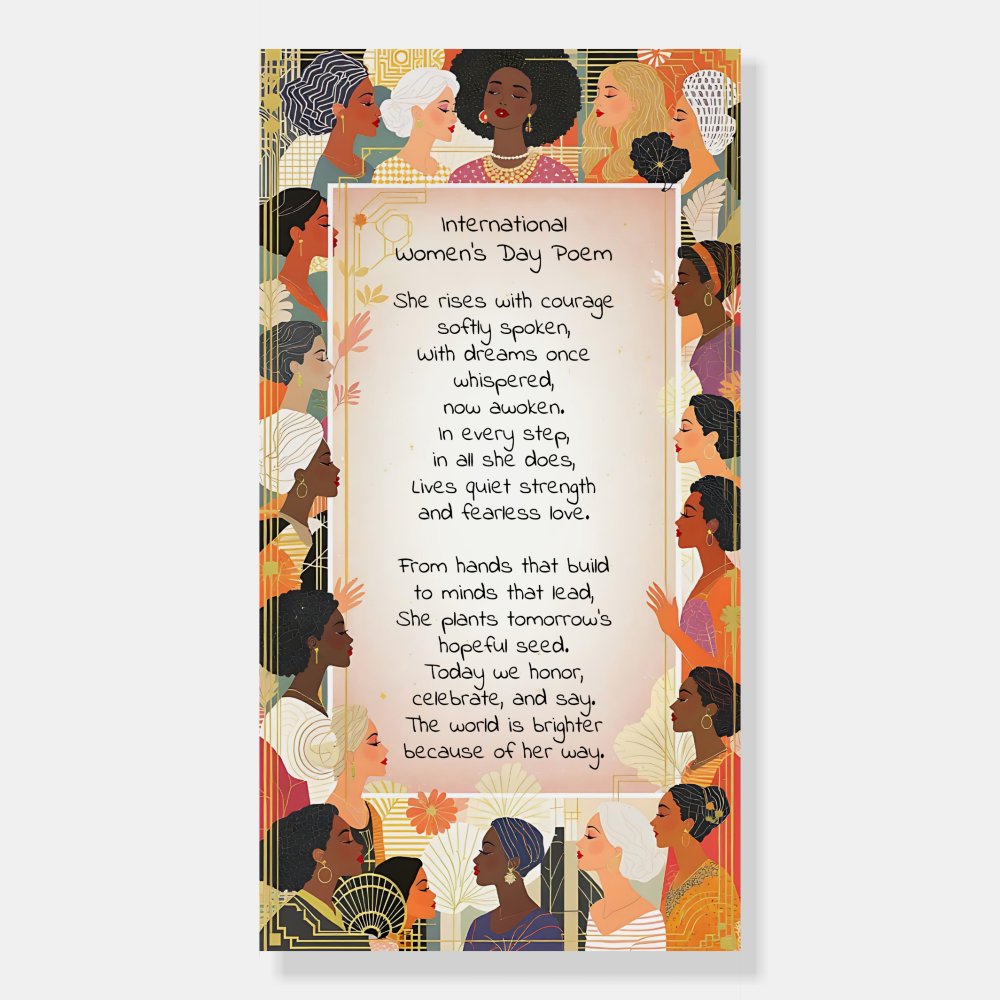 International
Women's Day Poem
She rises with courage
softly spoken,
with dreams once
whispered,
now awoken.
In every step,
in all she does,
Lives quiet strength
and fearless love.
From hands that build
to minds that lead,
She plants tomorrow's
hopeful seed.
Today we honor,
celebrate, and say.
The world is brighter
because of her way.